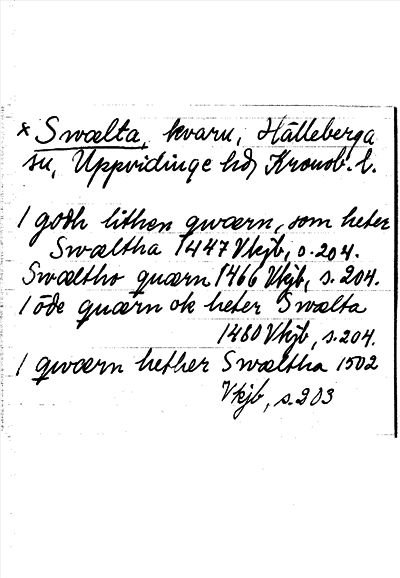 * Swælta, kvarn, Hälleberga
sn, Uppvidinge hd, Kronob. l.
1 godh lithen qwærn, som heter
Swæltha 1447 Vkjb, s. 204.
Swæltho quærn 1466 Vkjb, s. 204.
1 öde quærn ok heter Swælta
1480 Vkjb, s. 204.
1 qwærn hether Swæltha 1502
Vkjb, s. 203